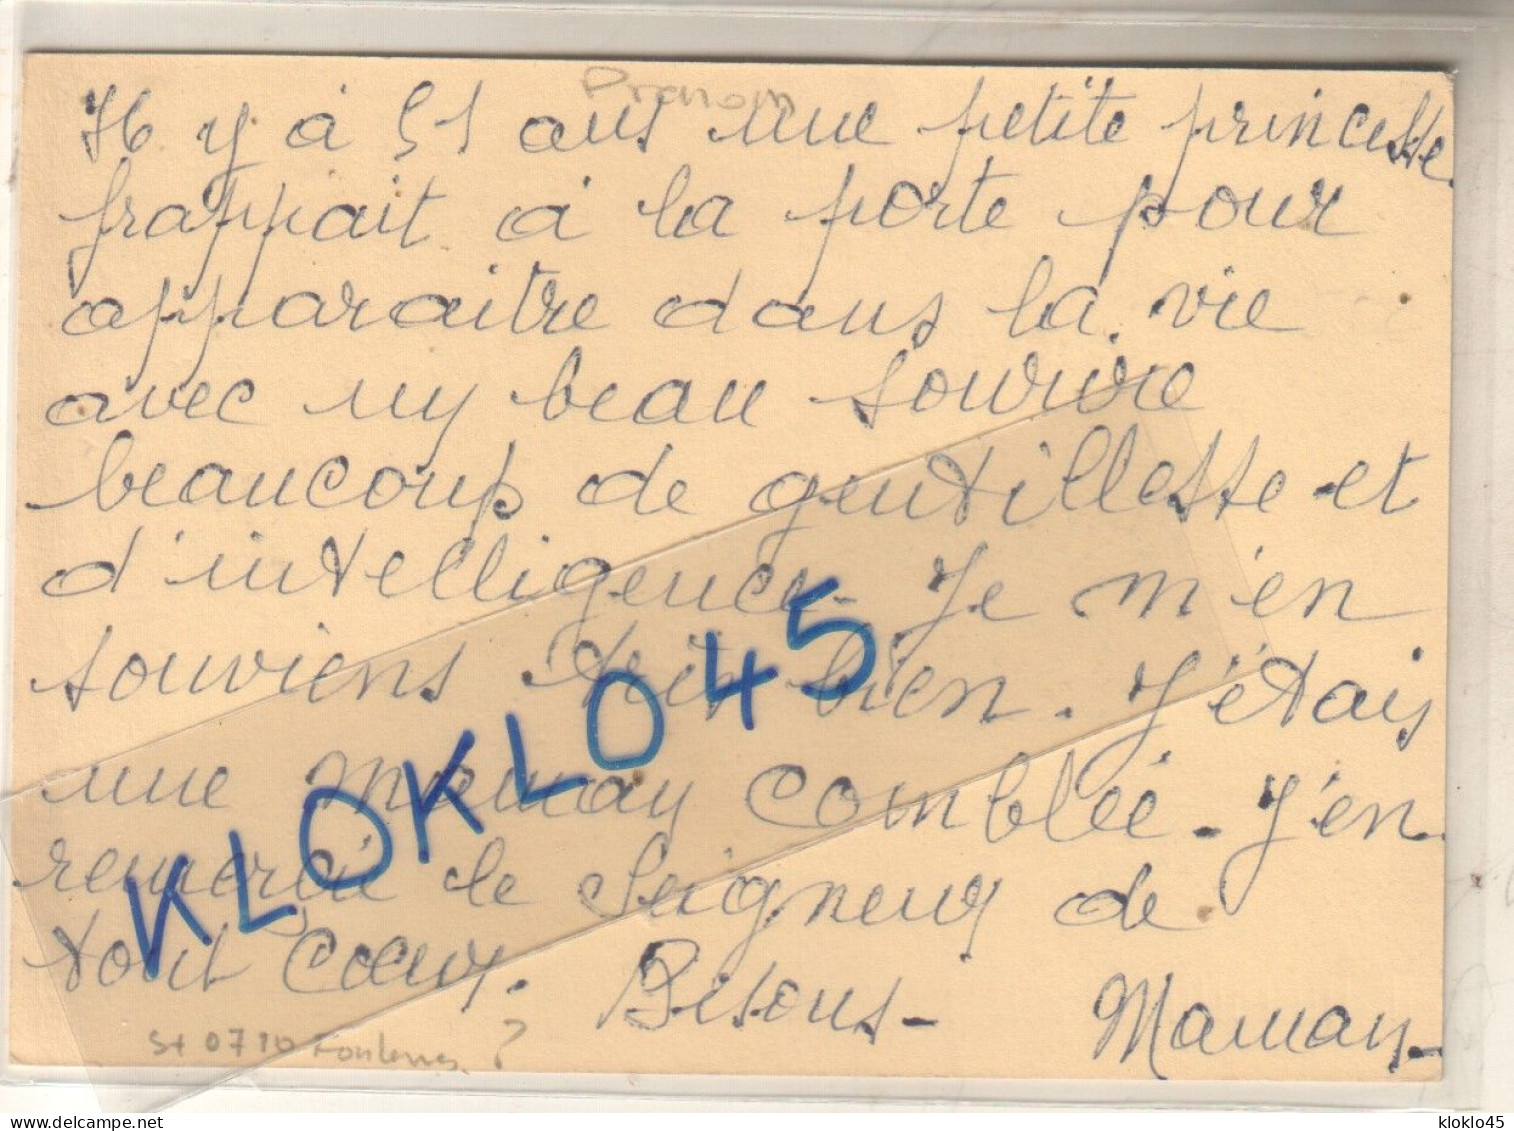 Pranom
Il y à 51 ans une petite princesse
frappait à la porte pour
apparaitre dans la vie
avec un beau sourire
beaucoup de gentillesse et
d'intelligence - Je m'en
souviens très bien. J'étais
une maman comblée - J'en
remercie le Seigneur de
tout cœur. Bisous -
Maman -
KLOKLO45
St 0710 ?
delcampe.net
kloklo45